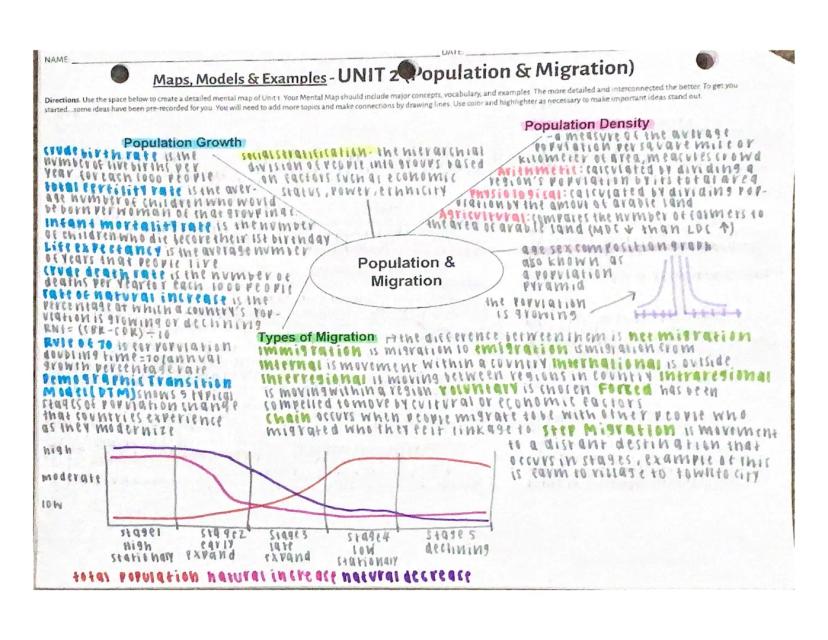 NAME
DATE:
Maps, Models & Examples - UNIT 2 (Population & Migration)
Directions. Use the space below to create a detailed mental map of Unit 1. Your Mental Map should include major concepts, vocabulary, and examples. The more detailed and interconnected the better. To get you
started...some ideas have been pre-recorded for you. You will need to add more topics and make connections by drawing lines. Use color and highlighter as necessary to make important ideas stand out.
Population Growth
crude birth rate is the
number of live births per
year for each 1000 people
total fertility rate is the aver-
age number of children who would
be born per woman of that group in at.
Infant mortality rate is the number
of children who die before their 1st birthday
Life expectancy is the average number
of years that people live
crude death rate is the number of
deaths per year for each 1000 people
rate of natural increase is the
percentage at which a country's pop-
ulation is growing or declining
RNI = (CBR-CDR) ÷ 10
Rule of 70 is for population
doubling time = 70/annual
growth percentage rate
Demographic Transition
Model (DTM) shows 5 typical
stages of population change
that countries experience
as they modernize
social stratification - the hierarchial
division of people into groups based
on factors such as economic
status, power, ethnicity
Population Density
- a measure of the average
population per square mile or
kilometer of area, measures crowd
Arithmetic: calculated by dividing a
region's population by its total area
Physiological: calculated by dividing pop-
ulation by the amout of arable land
Agricultural: compares the number of farmers to
the area of arable land (MDC ↓ than LDC ↑)
Population &
Migration
age sex composition graph
also known as
a population
pyramid
the population
is growing
Types of Migration
→ the difference between them is net migration
immigration is migration to emigration is migration from
internal is movement within a country international is outside
interregional is moving between regions in country intraregional
is moving within a region voluntary is chosen Forced has been
compelled to move by cultural or economic factors
chain occurs when people migrate to be with other people who
migrated who they felt linkage to Step Migration is movement
to a distant destination that
occurs in stages, example of this
is farm to village to town to city
high
moderate
low
stage 1
high
stationary
stage 2
early
expand
stage 3
late
expand
stage 4
low
stationary
stage 5
declining
total population natural increase natural decrease